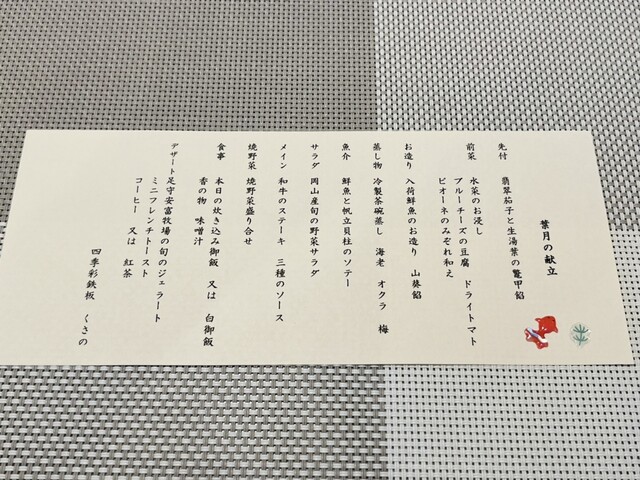 葉月の献立
先付　翡翠茄子と生湯葉の鼈甲餡
前菜　水菜のお浸し
ブルーチーズの豆腐　ドライトマト
ピオーネのみぞれ和え
お造り　入荷鮮魚のお造り　山葵餡
蒸し物　冷製茶碗蒸し　海老　オクラ　梅
魚介　鮮魚と帆立貝柱のソテー
サラダ　岡山産旬の野菜サラダ
メイン　和牛のステーキ　三種のソース
焼野菜　焼野菜盛り合せ
食事　本日の炊き込み御飯　又は　白御飯
香の物　味噌汁
デザート　足守安富牧場の旬のジェラート
ミニフレンチトースト
コーヒー　又は　紅茶
四季彩鉄板　くさの